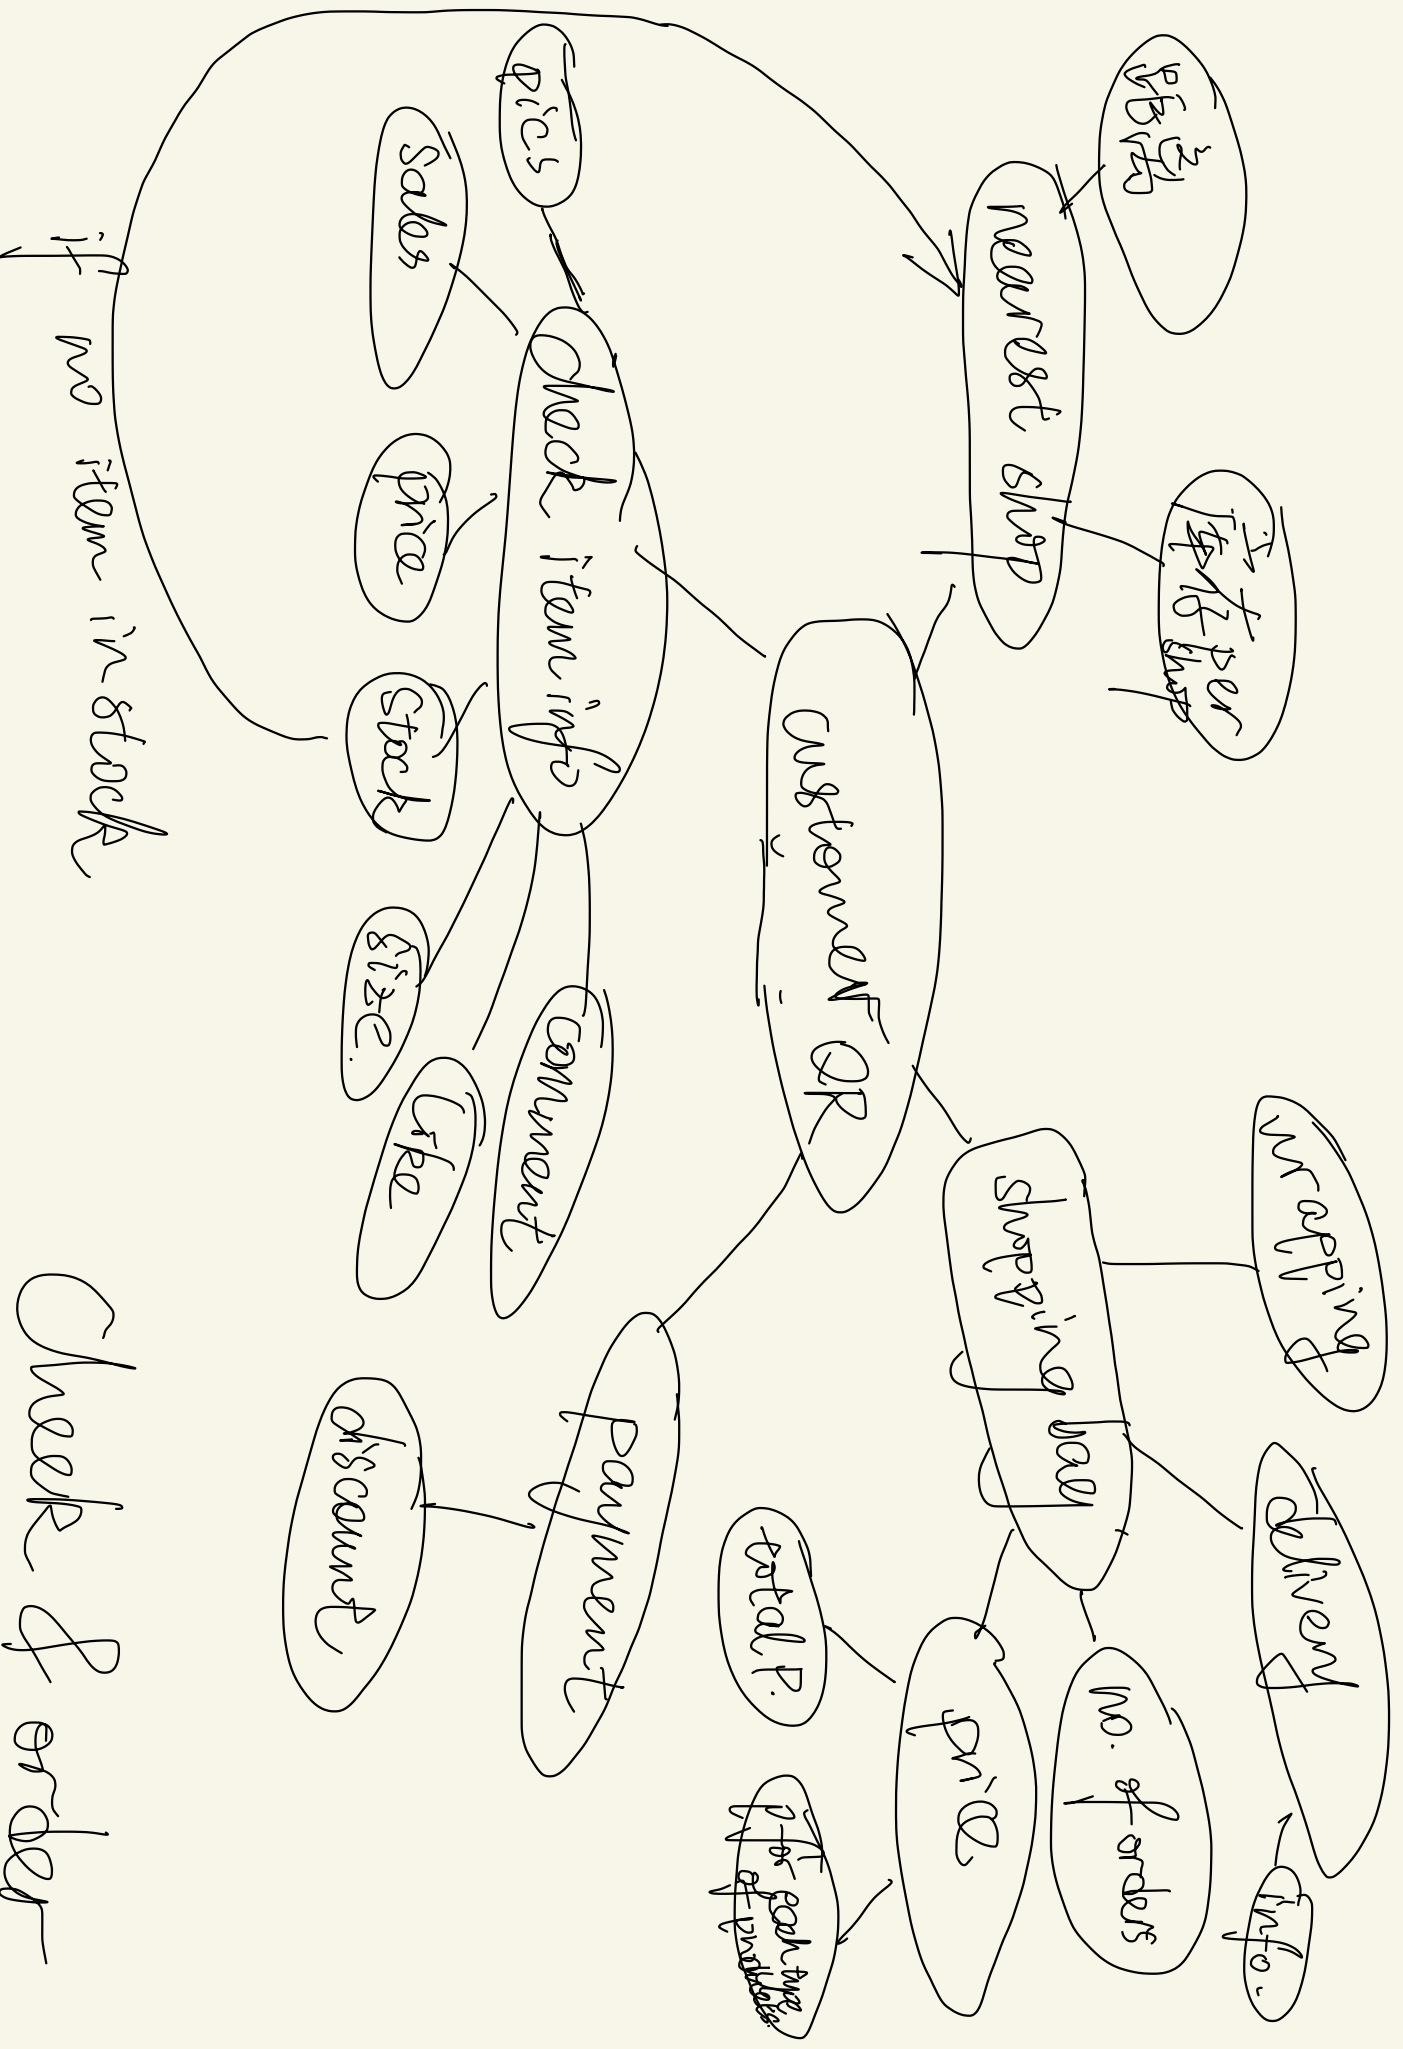 nearest shop
per
shop
pics
Sales
Check item info
price
Stock
size.
Like
Comment
if no item in stock
Customer QR
shopping bag
wrapping
delivery
info.
no. of orders
price
total P.
P for each type
of products.
payment
discount
Check & order